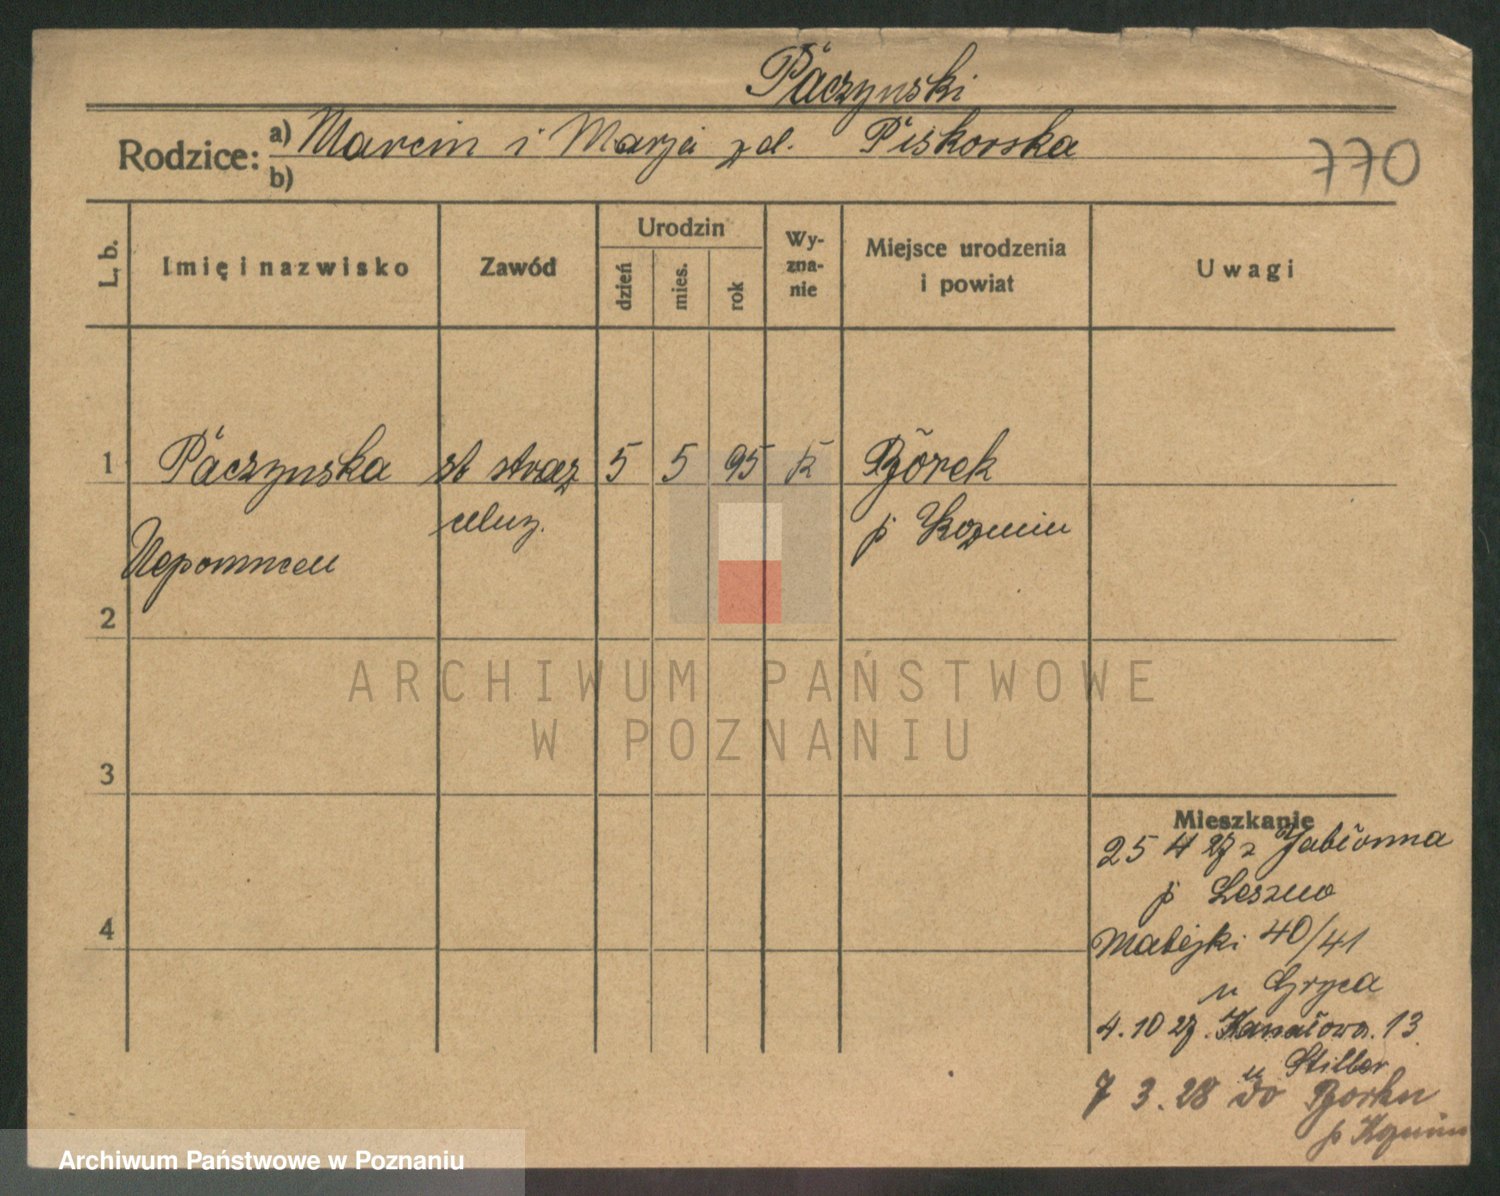 Paczynski
Rodzice: a) Marcin i Marja z d. Piskorska
b)
770
L. b.
Imię i nazwisko
Zawód
Urodzin
dzień
mies.
rok
Wy-
zna-
nie
Miejsce urodzenia
i powiat
Uwagi
1 Paczynska st straz 5 5 95 k Borek
celny. p Kozmin
Nepomucen
2
3
4
ARCHIWUM PAŃSTWOWE
W POZNANIU
Mieszkanie
25 4 27 z Jabłonna
p Leszno
Matejki 40/41
u Gryca
4.10 27. Kanałowa. 13
u Stiller
7 3.28 do Borku
p Kozmin
Archiwum Państwowe w Poznaniu